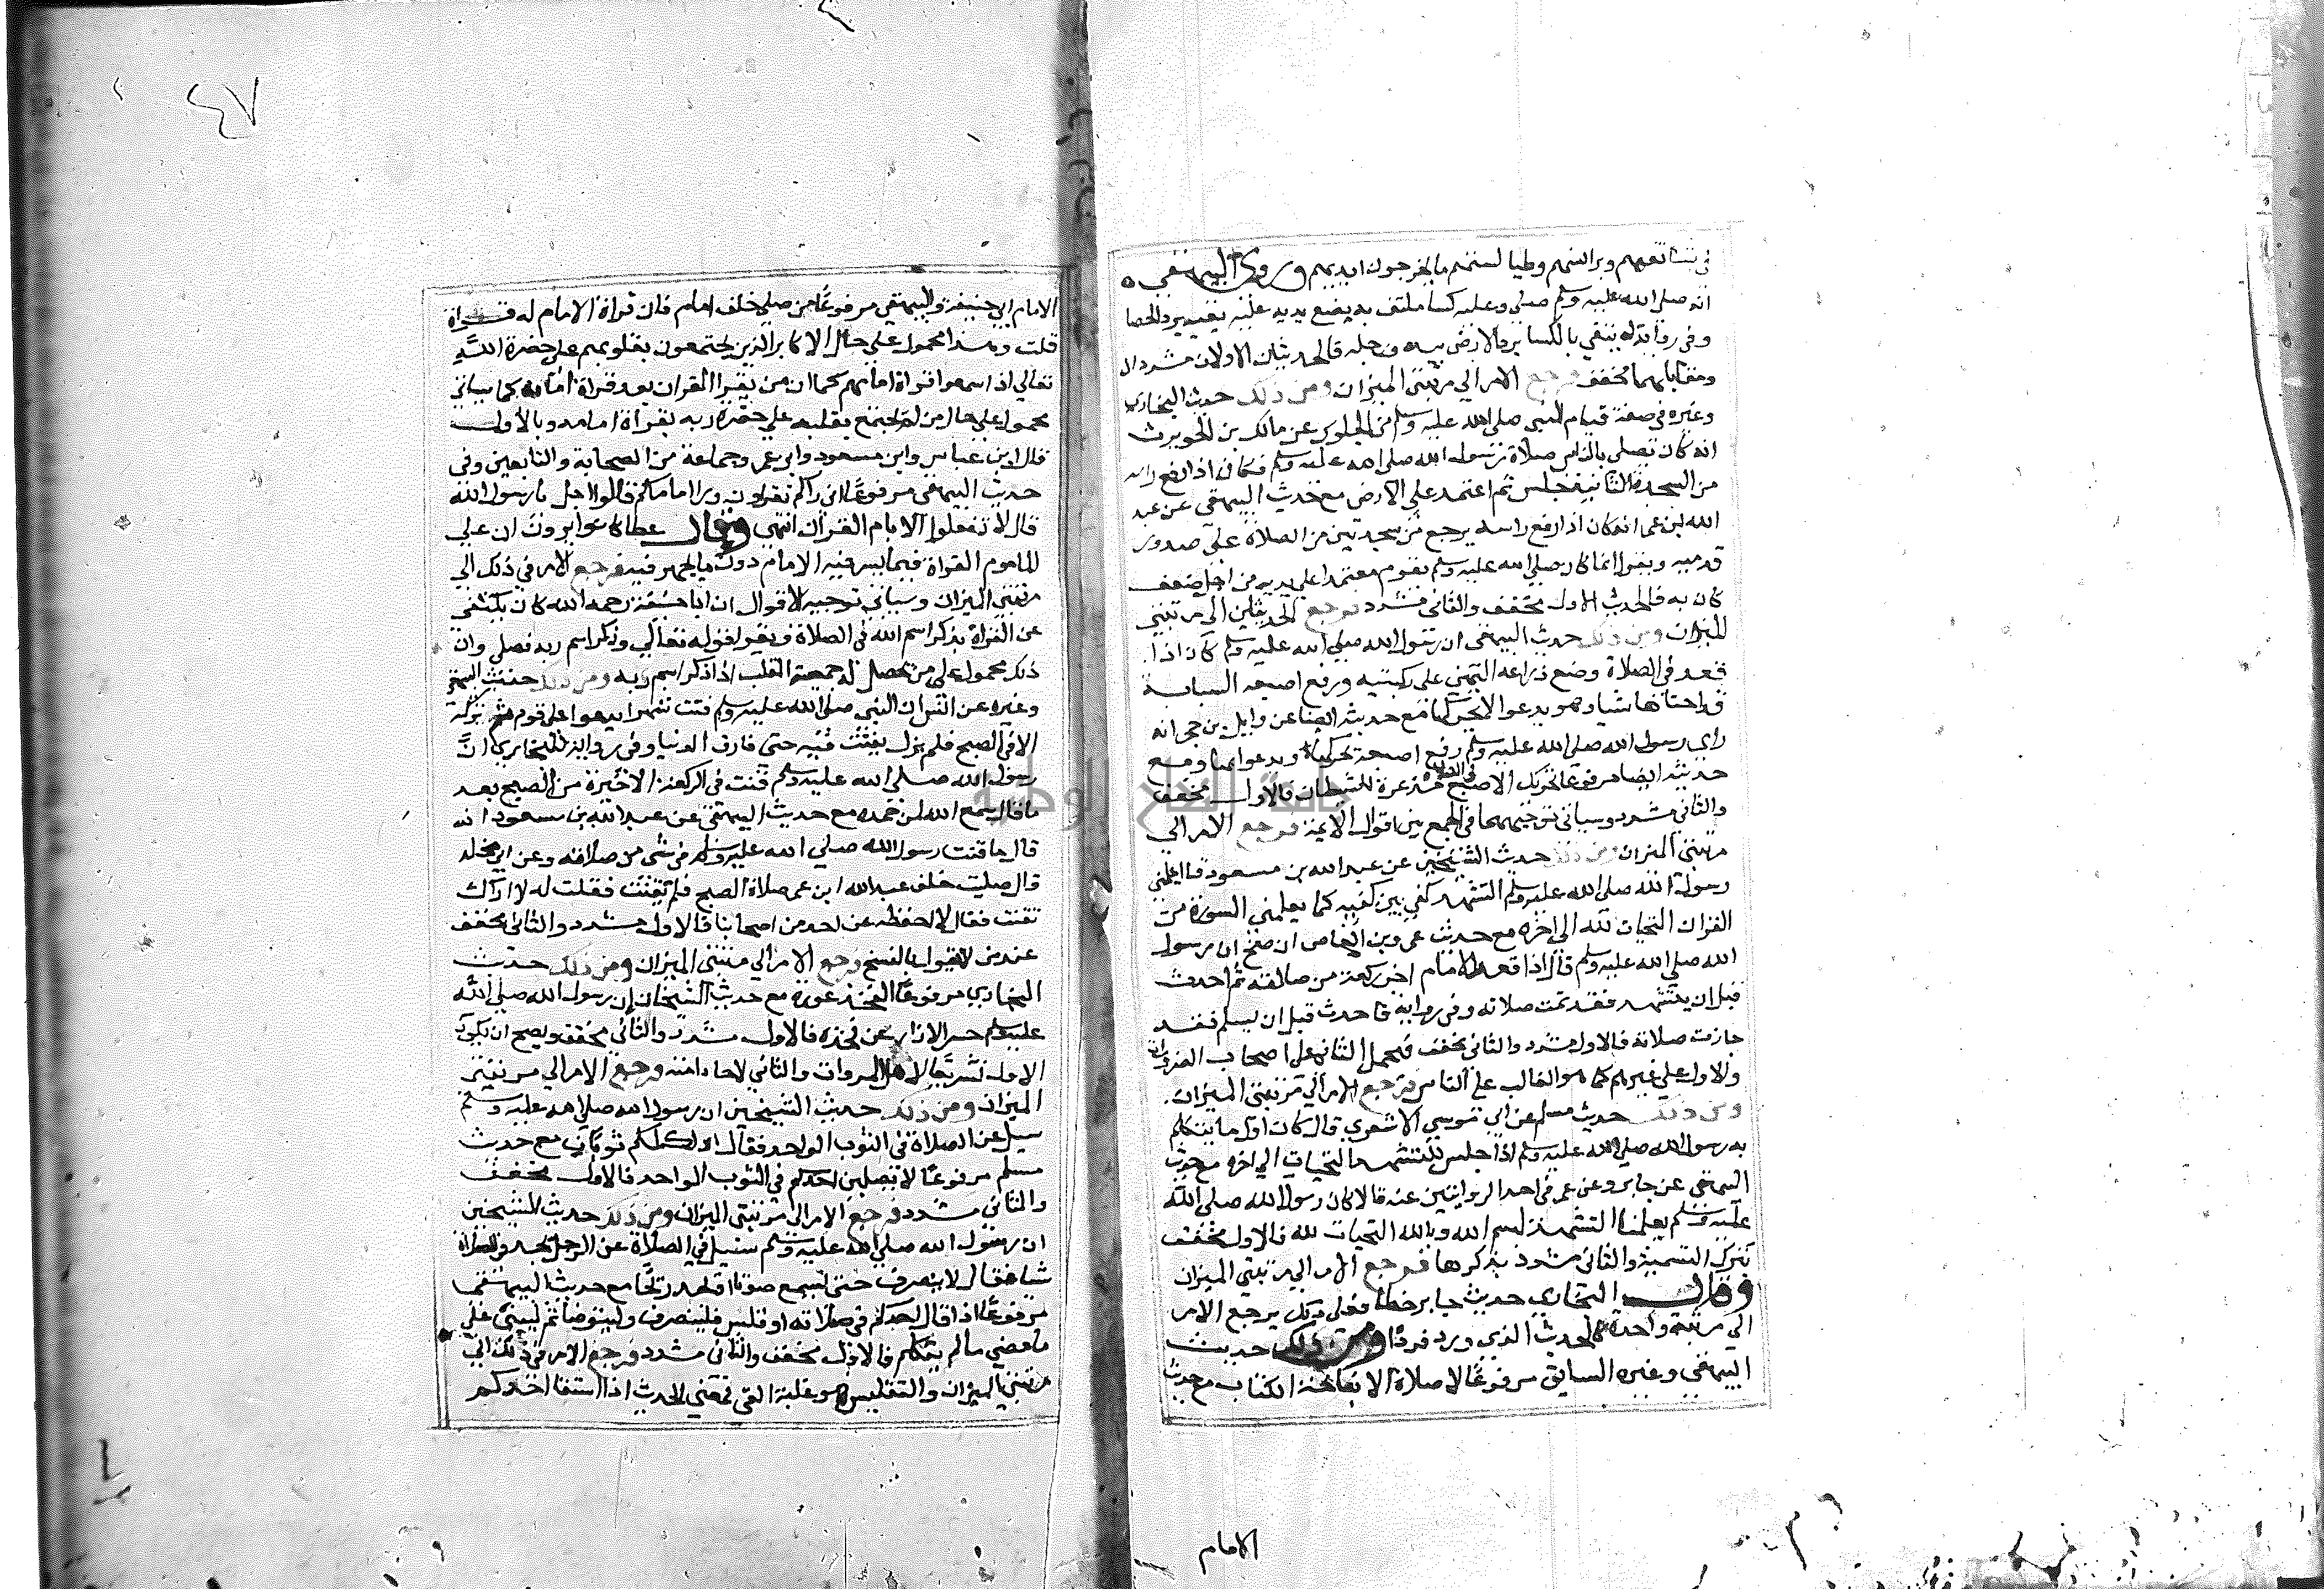 في تقانعهم وبرانسهم وطيالستهم ما يخرجون ايديهم وروي البيهقي
انه صلي الله عليه وسلم صلي وعليه كسا ملتف به يضع يديه عليه يقيه برد الحصا
وفي رواية له يتقي بالكسا برد الارض بيده ورجله فالحديثان الاولان مشددان
ومقابلهما مخفف فرجع الامر الي مرتبتي الميزان ومن ذلك حديث البخاري
وغيره في صفة قيام النبي صلي الله عليه وسلم من الجلوس عن مالك بن الحويرث
انه كان يصلي بالناس صلاة رسول الله صلي الله عليه وسلم فكان اذا رفع راسه
من السجدة الثانية جلس ثم اعتمد علي الارض مع حديث البيهقي عن عبد
الله بن عمر انه كان اذا رفع راسه يرجع من سجدتين من الصلاة علي صدور
قدميه ويقول انما كان صلي الله عليه وسلم يقوم معتمدا علي يديه من اجل ضعف
كان به فالحديث الاول مخفف والثاني مشدد فرجع الحديثين الي مرتبتي
الميزان ومن ذلك حديث البيهقي ان رسول الله صلي الله عليه وسلم كان اذا
قعد في الصلاة وضع ذراعه اليمني علي ركبتيه ورفع اصبعه السبابة
قد احناها شيا وهو يدعو لا يحركها مع حديثه ايضا عن وايل بن حجر انه
راي رسول الله صلي الله عليه وسلم رفع اصبعه يحركها ويدعو بها ومع
حديثه ايضا مرفوعا تحريك الاصبع في الصلاة مذعرة للشيطان فالاول مخفف
والثاني مشدد وسياتي توجيههما في الجمع بين اقوال الايمة فرجع الامر الي
مرتبتي الميزان ومن ذلك حديث الشيخين عن عبد الله بن مسعود قال علمني
رسول الله صلي الله عليه وسلم التشهد كفي بين كفيه كما يعلمني السورة من
القران التحيات لله الي اخره مع حديث عمرو بن العاص ان صح ان رسول
الله صلي الله عليه وسلم قال اذا قعد الامام اخر ركعة من صلاته ثم احدث
قبل ان يتشهد فقد تمت صلاته وفي رواية فاحدث قبل ان يسلم فقد
جازت صلاته فالاول مشدد والثاني مخفف فيحمل الثاني علي اصحاب الضرورات
والاول علي غيرهم كما هو الغالب علي الناس فرجع الامر الي مرتبتي الميزان
ومن ذلك حديث مسلم عن ابي موسي الاشعري قال كان اول ما يتكلم
به رسول الله صلي الله عليه وسلم اذا جلس للتشهد التحيات الي اخره مع حديث
البيهقي عن جابر وعن عمر في احد الروايتين عنه قالا كان رسول الله صلي الله
عليه وسلم يعلمنا التشهد بسم الله وبالله التحيات لله فالاول مخفف
بترك التسمية والثاني مشدد بذكرها فرجع الامر الي مرتبتي الميزان
وقال البخاري حديث جابر خطا فعلي ذلك يرجع الامر
الي مرتبة واحدة كالحديث الذي ورد فردا ومن ذلك حديث
البيهقي وغيره السابق مرفوعا لا صلاة الا بفاتحة الكتاب مع حديث
الامام
٤٧
الامام ابي حنيفة والبيهقي مرفوعا من صلي خلف امام فان قراة الامام له قراة
قلت وهذا محمول علي حال الاكابر الذين يجتمعون بقلوبهم علي حضرة الله
تعالي اذا سمعوا قراة امامهم كما ان من يقرا القران بعد قراة امامه كما سياتي
محمول علي حال من لم يجتمع بقلبه علي حضرة ربه بقراة امامه وبالاول
قال ابن عباس وابن مسعود وابن عمر وجماعة من الصحابة والتابعين وفي
حديث البيهقي مرفوعا اني راكم تقراون ورا امامكم قالوا اجل يا رسول الله
قال لا تفعلوا الا بام القران انتهي وقال عطا كانوا يرون ان علي
الماموم القراة فيما يسر فيه الامام دون ما يجهر فيه فرجع الامر في ذلك الي
مرتبتي الميزان وسياتي توجيه الاقوال ان ابا حنيفة رحمه الله كان يكتفي
عن القراة بذكر اسم الله في الصلاة ويقول قوله تعالي وذكر اسم ربه فصلي وان
ذلك محمول علي من تحصل له جمعية القلب اذا ذكر اسم ربه ومن ذلك حديث البيهقي
وغيره عن انس ان النبي صلي الله عليه وسلم قنت شهرا يدعوا علي قوم ثم تركه
الا في الصبح فلم يزل يقنت فيه حتي فارق الدنيا وفي رواية للبخاري ان
رسول الله صلي الله عليه وسلم قنت في الركعة الاخيرة من الصبح بعد
ما قال سمع الله لمن حمده مع حديث البيهقي عن عبد الله بن مسعود انه
قال ما قنت رسول الله صلي الله عليه وسلم في شي من صلاته وعن ابي مخلد
قال صليت خلف عبد الله ابن عمر صلاة الصبح فلم يقنت فقلت له لا اراك
تقنت فقال لا احفظه عن احد من اصحابنا فالاول مشدد والثاني مخفف
عند من لا يقول بالنسخ فرجع الامر الي مرتبتي الميزان ومن ذلك حديث
البخاري مرفوعا الفخذ عورة مع حديث الشيخان ان رسول الله صلي الله
عليه وسلم حسر الازار عن فخذه فالاول مشدد والثاني مخفف ويصح ان يكون
الاول تشريعا لاهل المروات والثاني لاحاد امته فرجع الامر الي مرتبتي
الميزان ومن ذلك حديث الشيخين ان رسول الله صلي الله عليه وسلم
سيل عن الصلاة في الثوب الواحد فقال او لكلكم ثوبان مع حديث
مسلم مرفوعا لا يصلين احدكم في الثوب الواحد فالاول مخفف
والثاني مشدد فرجع الامر الي مرتبتي الميزان ومن ذلك حديث الشيخين
ان رسول الله صلي الله عليه وسلم سيل في الصلاة عن الرجل يجد في الصلاة
شيا فقال لا ينصرف حتي يسمع صوتا او يجد ريحا مع حديث البيهقي
مرفوعا اذا قا احدكم في صلاته او قلس فلينصرف وليتوضا ثم ليبني علي
ما مضي ما لم يتكلم فالاول مخفف والثاني مشدد فرجع الامر في ذلك الي
مرتبتي الميزان والتقليس هو غلبة القي فمعني الحديث اذا استقا احدكم